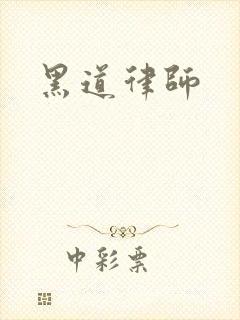 黑道律師
中彩票